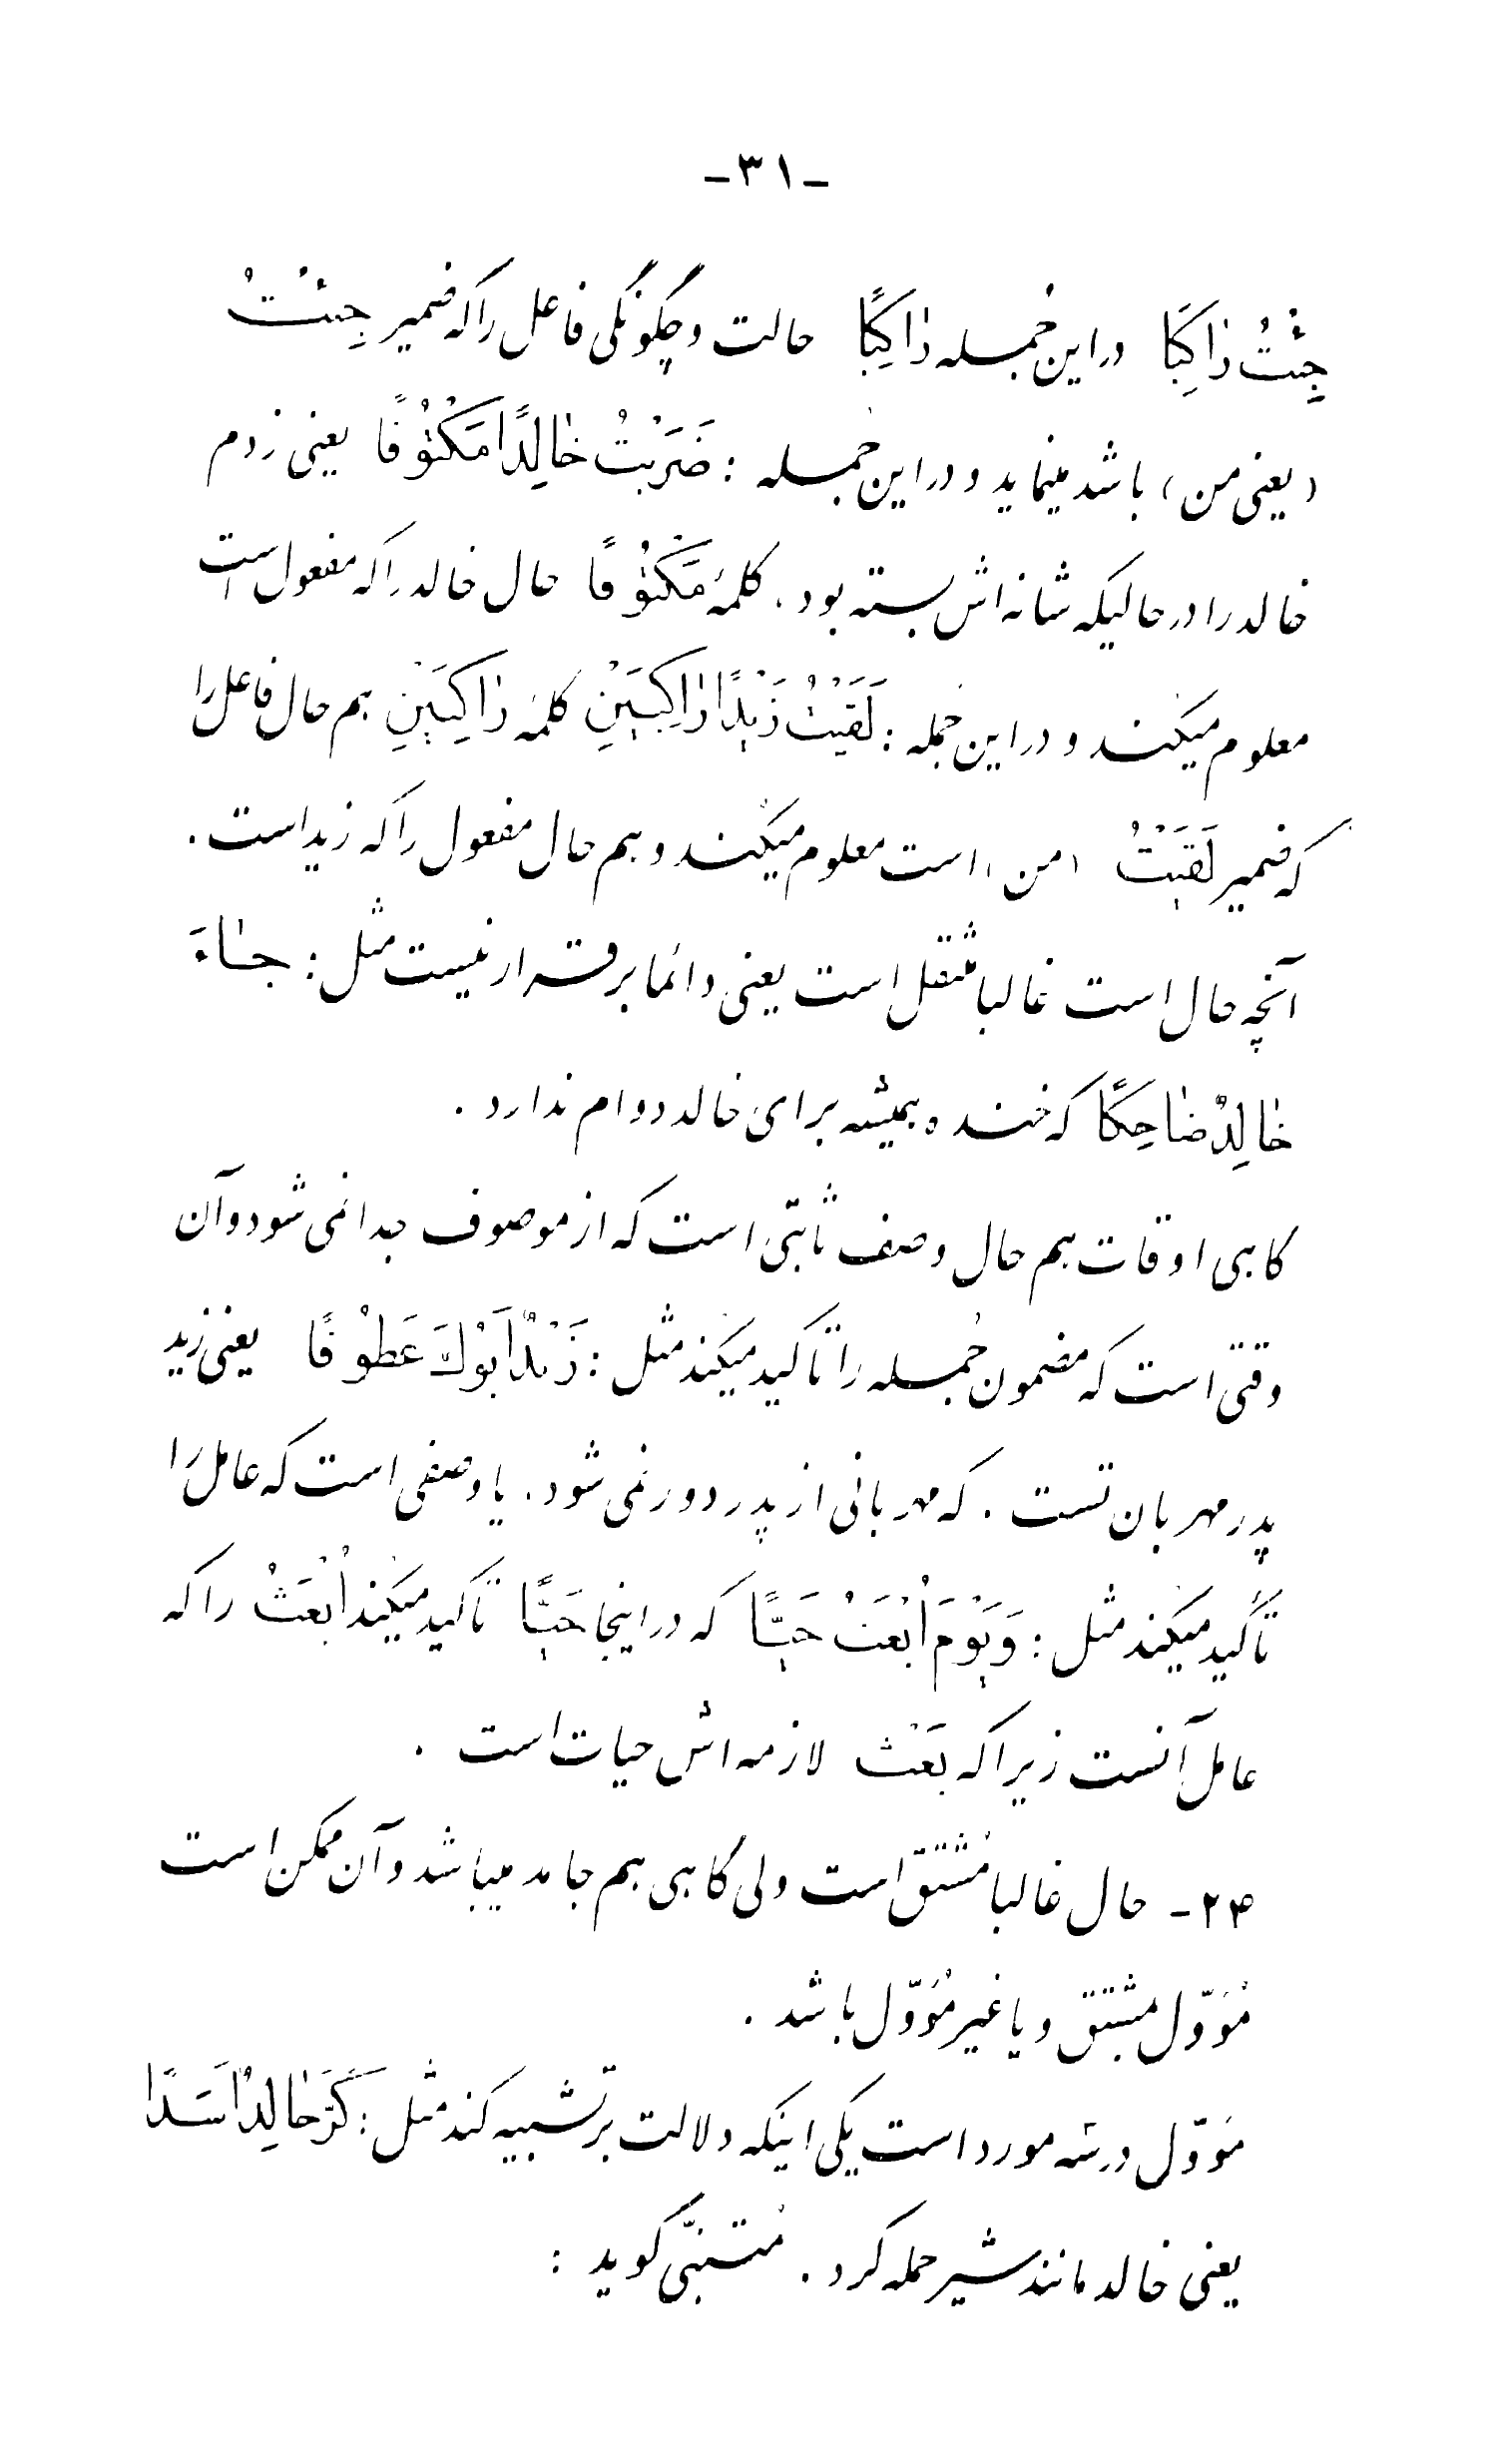 -۳۱-
جِئْتُ رٰاکِبًا در این جُمله رٰاکِبًا حالت و چگونگی فاعل را که ضمیر جِئْتُ
(یعنی من) باشد مینماید و در این جُمله : ضَرَبْتُ خٰالِدًا مَکْتُوْفًا یعنی زدم
خالد را در حالیکه شانه اش بسته بود . کلمهٔ مَکْتُوْفًا حال خالد را که مفعول است
معلوم میکند و در این جمله : لَقَیْتُ زَیْدًا رٰاکِبَیْنِ کلمهٔ رٰاکِبَیْنِ هم حال فاعل را
که ضمیر لَقَیْتُ (من) است معلوم میکند و هم حال مفعول را که زید است .
آنچه حال است غالبا منتقل است یعنی دائما برقرار نیست مثل : جٰاءَ
خٰالِدٌ ضٰاحِکًا که خنده همیشه برای خالد دوام ندارد .
گاهی اوقات هم حال وصف ثابتی است که از موصوف جدا نمی شود و آن
وقتی است که مضمون جُمله را تاکید میکند مثل : زَیْدٌ اَبُوْكَ عَطُوْفًا یعنی زید
پدر مهربان تست . که مهربانی از پدر دور نمی شود . یا وصفی است که عامل را
تأکید میکند مثل : وَ یَوْمَ اُبْعَثُ حَیًّا که در اینجا حَیًّا تاکید میکند اُبْعَثُ را که
عامل آنست زیرا که بَعْث لازمه اش حیات است .
۲۴- حال غالبا مُشتق است ولی گاهی هم جامد میباشد و آن ممکن است
مُؤَوّل بمشتق و یا غیر مُؤَوّل باشد .
مُؤَوّل در سه مورد است یکی اینکه دلالت بر تشبیه کند مثل : کَرَّ خٰالِدٌ اَسَدًا
یعنی خالد مانند شیر حمله کرد . مُتنبّی گوید :